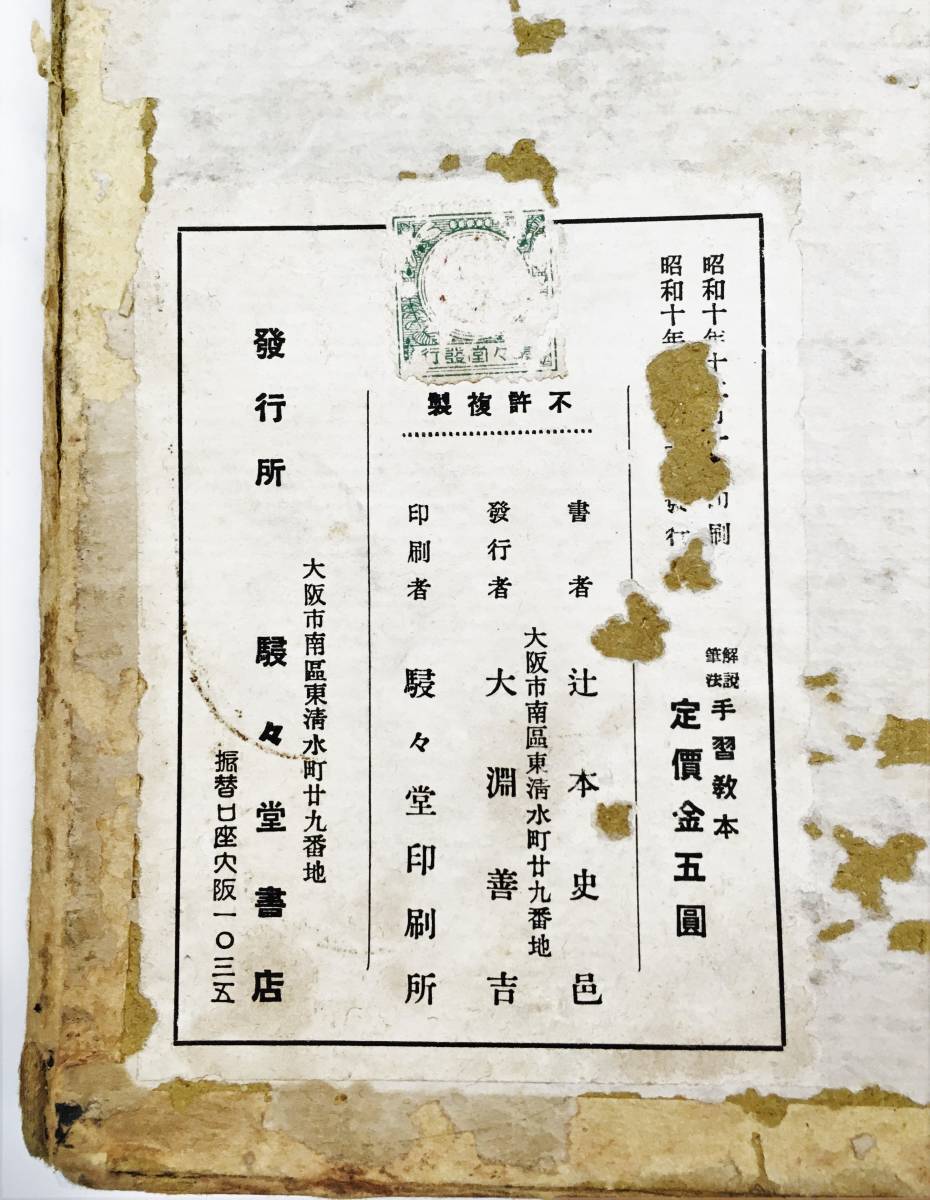 昭和十年十 印刷
昭和十年 發行
解説
筆法
手習教本
定價金五圓
不許複製
書者 辻本史邑
大阪市南區東清水町廿九番地
發行者 大淵善吉
印刷者 駸々堂印刷所
大阪市南區東清水町廿九番地
發行所 駸々堂書店
振替口座大阪一〇三五
々堂發行